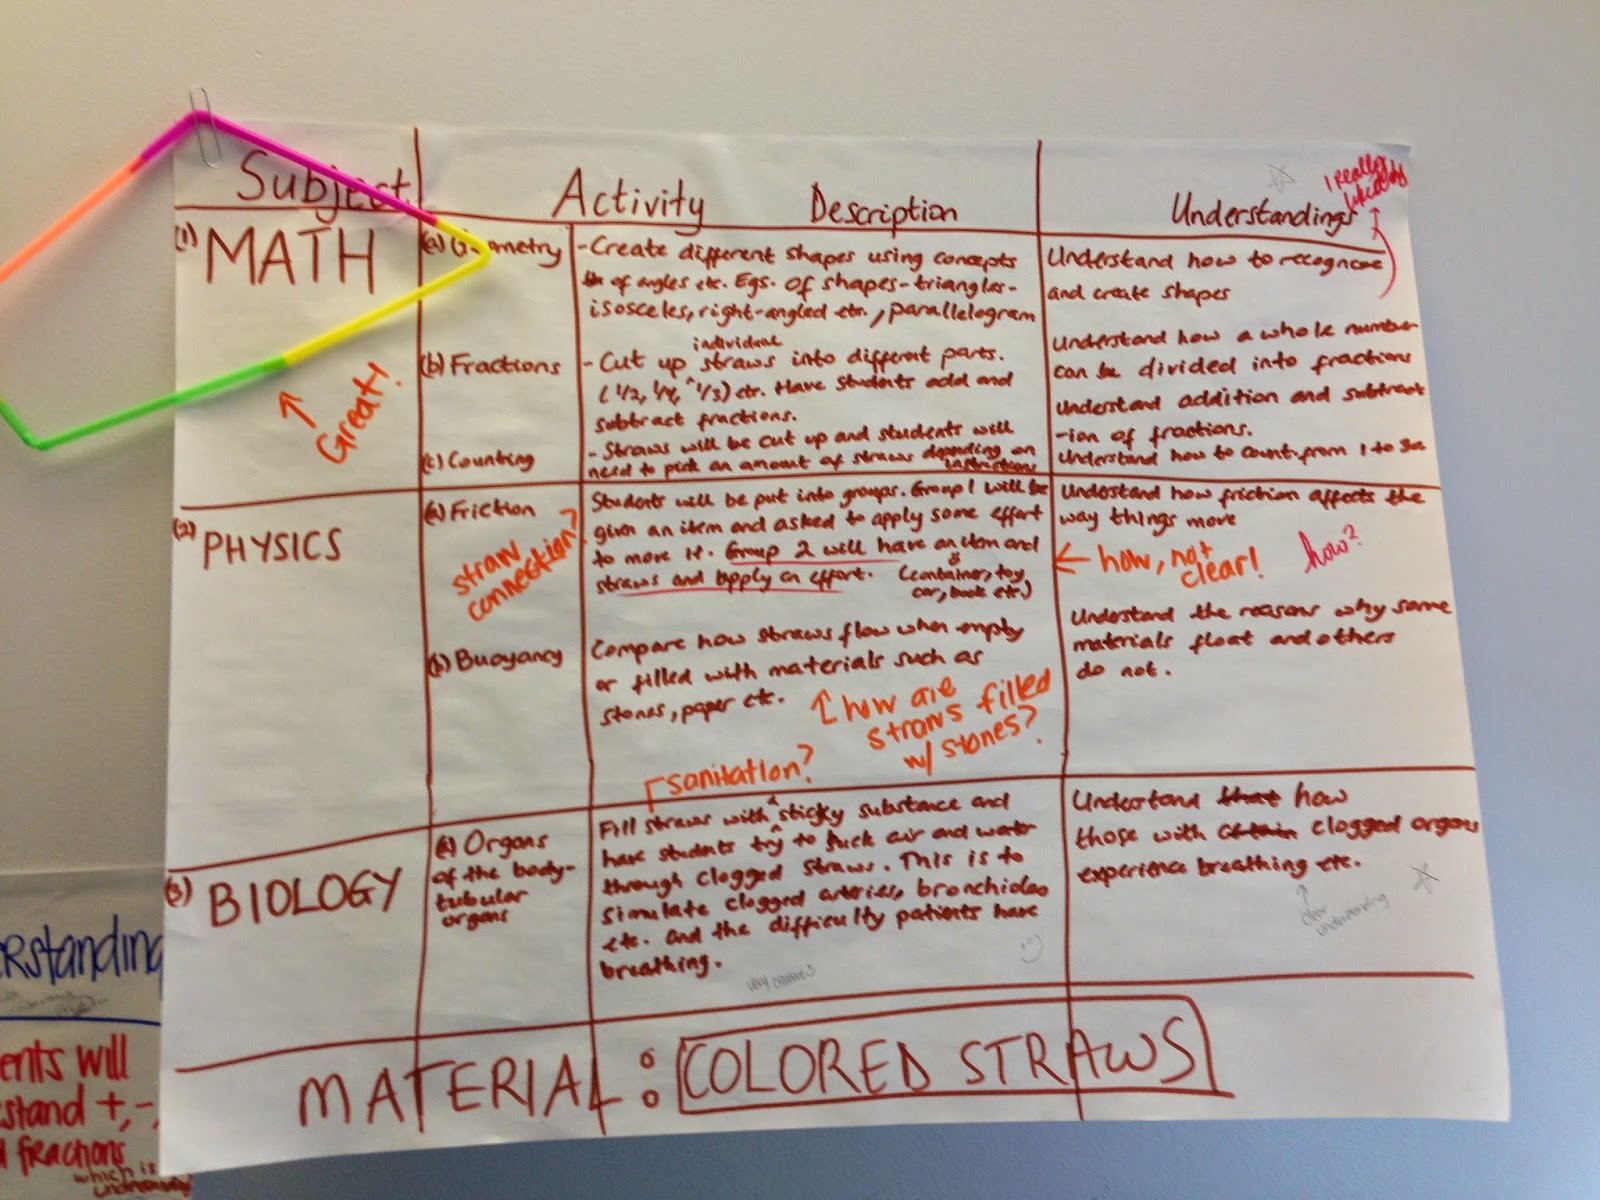 Subject
Activity Description
Understandings
I really
(1) MATH
(a) Geometry
- Create different shapes using concepts
of angles etc. Egs. of shapes-triangles-
isosceles, right-angled etc., parallelogram
Understand how to recognize
and create shapes
(b) Fractions
individual
- Cut up ^ straws into different parts.
(1/2, 1/4, 1/3) etc. Have students add and
subtract fractions.
Understand how a whole number
can be divided into fractions
Understand addition and subtract
-ion of fractions.
(c) Counting
- Straws will be cut up and students will
need to pick an amount of straws depending on
instructions
Understand how to count from 1 to
Great!
(2) PHYSICS
(a) Friction
straw
connection?
Students will be put into groups. Group 1 will be
given an item and asked to apply some effort
to move it. Group 2 will have an item and
straws and apply an effort. (container, toy
car, book etc.)
Understand how friction affects the
way things move
how, not
clear!
how?
(b) Buoyancy
Compare how straws flow when empty
or filled with materials such as
stones, paper etc.
how are
straws filled
w/ stones?
Understand the reasons why some
materials float and others
do not.
sanitation?
(3) BIOLOGY
(a) Organs
of the body-
tubular
organs
Fill straws with a sticky substance and
have students try to suck air and water
through clogged straws. This is to
simulate clogged arteries, bronchioles
etc. and the difficulty patients have
breathing.
very creative
Understand that how
those with certain clogged organs
experience breathing etc.
clear
understanding
MATERIAL: COLORED STRAWS
erstanding
ents will
stand +, -,
fractions
which is